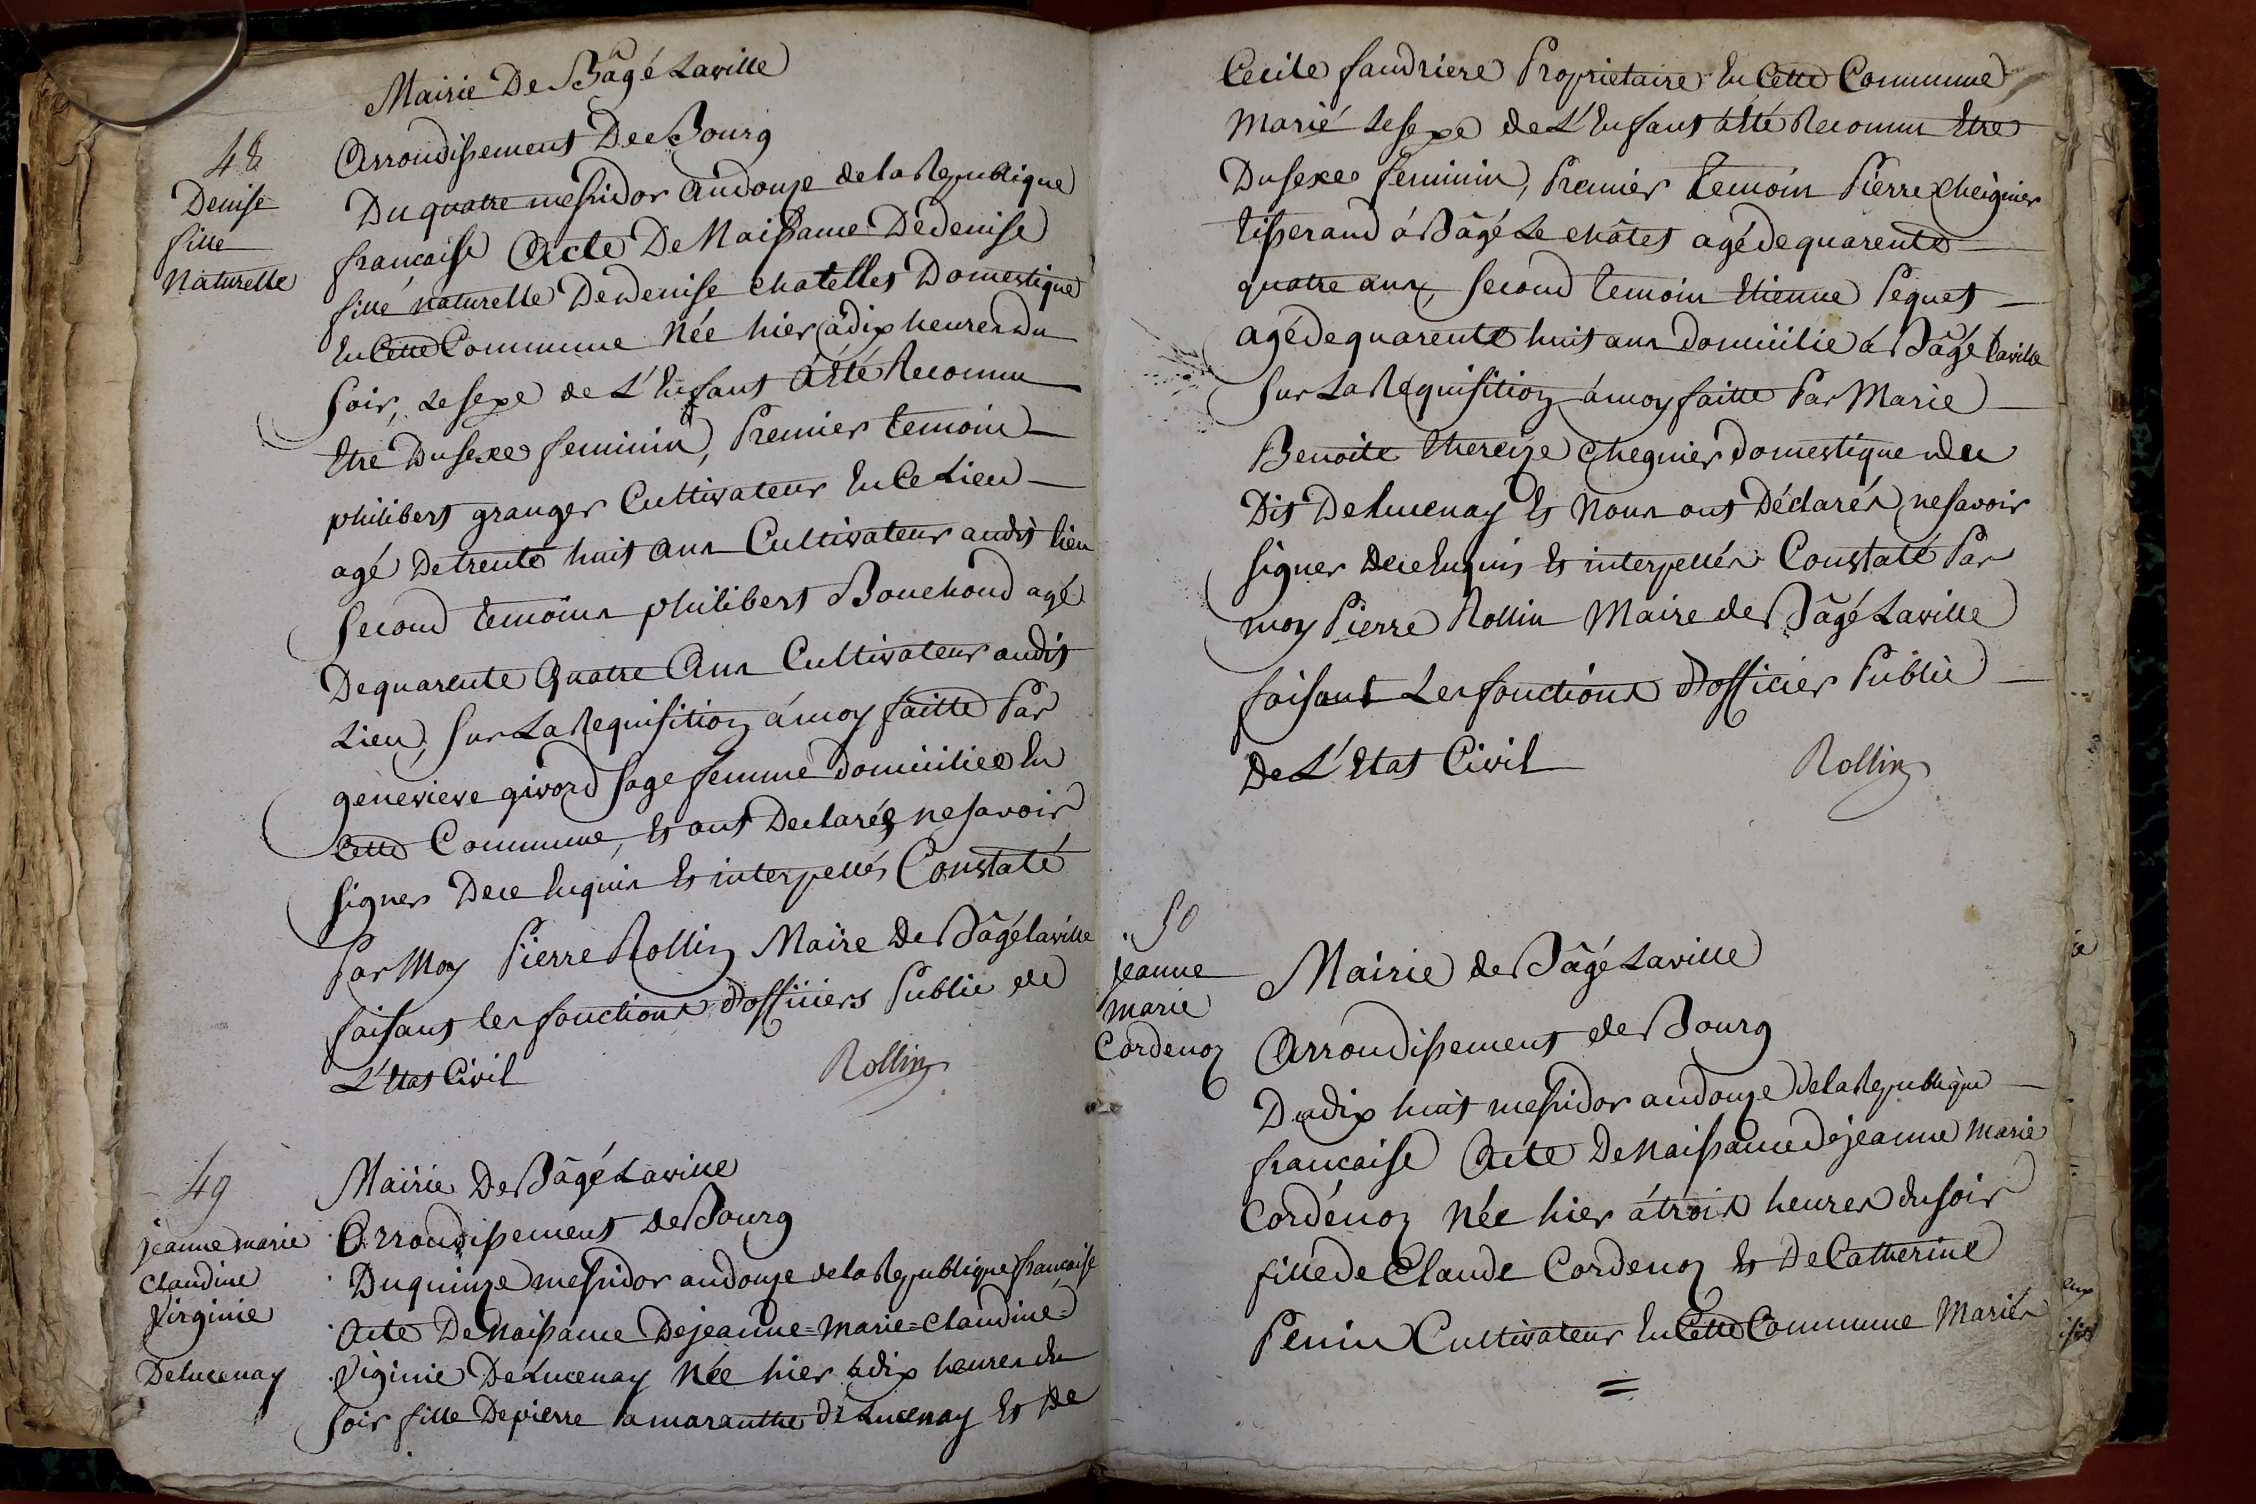 Mairie De Bâgé Laville
48
Denise
fille
Naturelle
Arrondissement De Bourg
Du quatre messidor an douze de la Republique
francaise Acte De Naissance De denise
fille naturelle De denise chatelles Domestique
En Cette Commune Née hier à dix heures du
Soir, Le sexe de L'Enfant à été Reconnu
Etre Du sexe feminin, Premier temoin
philibert granger Cultivateur En Ce Lieu
agé De trente huit ans Cultivateur audit lieu
Second temoins philibert Bouchoud agé
De quarente Quatre Ans Cultivateur audit
Lieu, Sur La Requisition à moy faitte Par
genevieve givord sage femme domiciliee En
Cette Commune, Et ont Declarés ne Savoir
signer De ce Enquis Et interpellés Constaté
Par Moy Pierre Rollin Maire De Bâgé laville
faisant les fonctions d'officiers Public de
L'Etat Civil
Rollin
49
jeanne marie
Claudine
Virginie
Delucenay
Mairie De Bâgé Laville
Arrondissement de Bourg
Du quinze messidor an douze de la Republique francaise
Acte De Naissance De jeanne=Marie=Claudine=
Viginie De Lucenay Née hier à dix heures du
soir fille De pierre amaranthe De Lucenay Et De
Cecile faudriere Proprietaire En Cette Commune
Marié Le sexe de L'Enfant à été Reconnu Etre
Du sexe feminin, Premier temoin Pierre Cheignier
tisserand à Bâgé Le châtel agé de quarente
quatre ans, Second temoin Etienne Pequet
agé de quarente huit ans domicilié à Bâgé laville
Sur La Requisition à moy faitte Par Marie
Benoite thereze Chegnier domestique du
Dit De lucenay Et Nous ont Déclarés ne savoir
signer De ce Enquis Et interpellés Constaté Par
moy Pierre Rollin Maire de Bâgé Laville
faisant Les fonctions d'officier Public
De L'Etat Civil
Rollin
50
jeanne
marie
Cordenoz
Mairie de Bâgé Laville
Arrondissement de Bourg
Du dix huit messidor an douze de la Republique
francaise Acte De Naissance de jeanne Marie
Cordénoz Née hier à trois heures du soir
fille de Claude Cordenoz Et De Catherine
Penin Cultivateur En Cette Commune Mariés
=